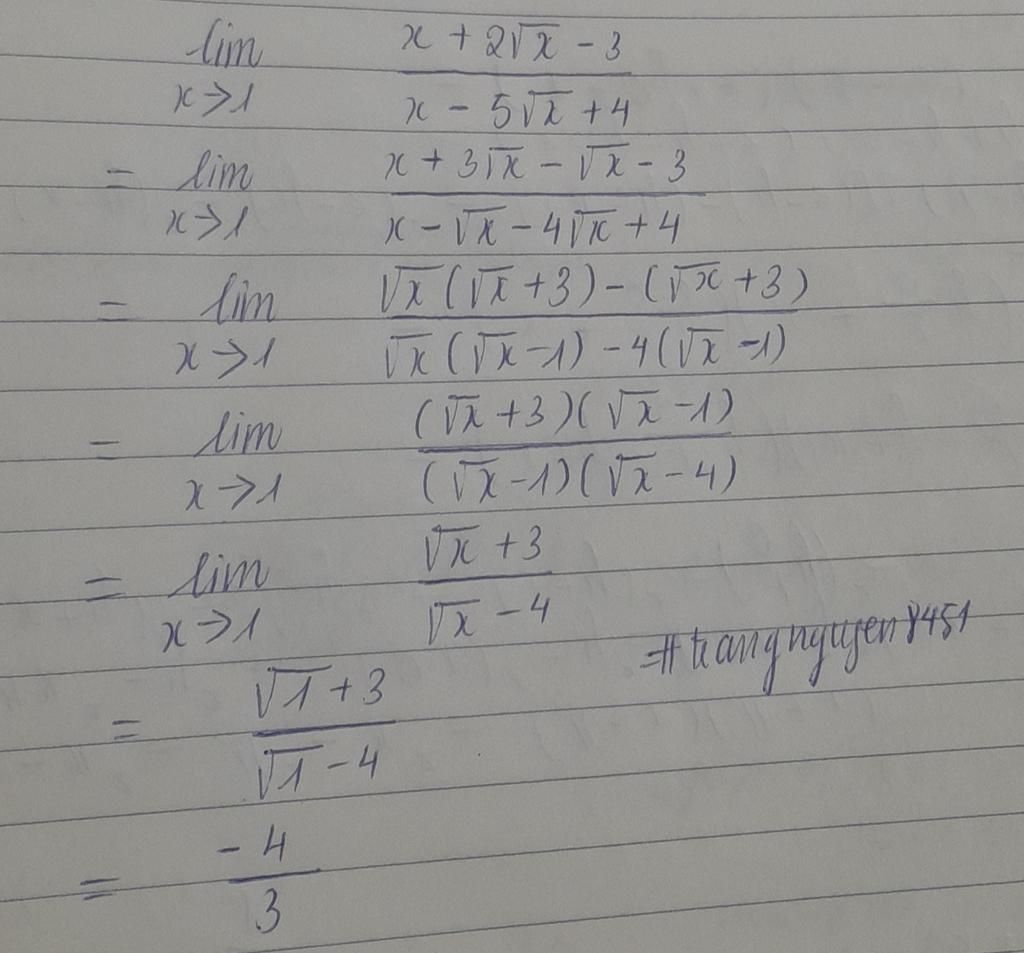 lim x→1 (x + 2√x - 3)/(x - 5√x + 4)
= lim x→1 (x + 3√x - √x - 3)/(x - √x - 4√x + 4)
= lim x→1 (√x(√x + 3) - (√x + 3))/(√x(√x - 1) - 4(√x - 1))
= lim x→1 ((√x + 3)(√x - 1))/((√x - 1)(√x - 4))
= lim x→1 (√x + 3)/(√x - 4)
#trangnguyen8451
= (√1 + 3)/(√1 - 4)
= -4/3